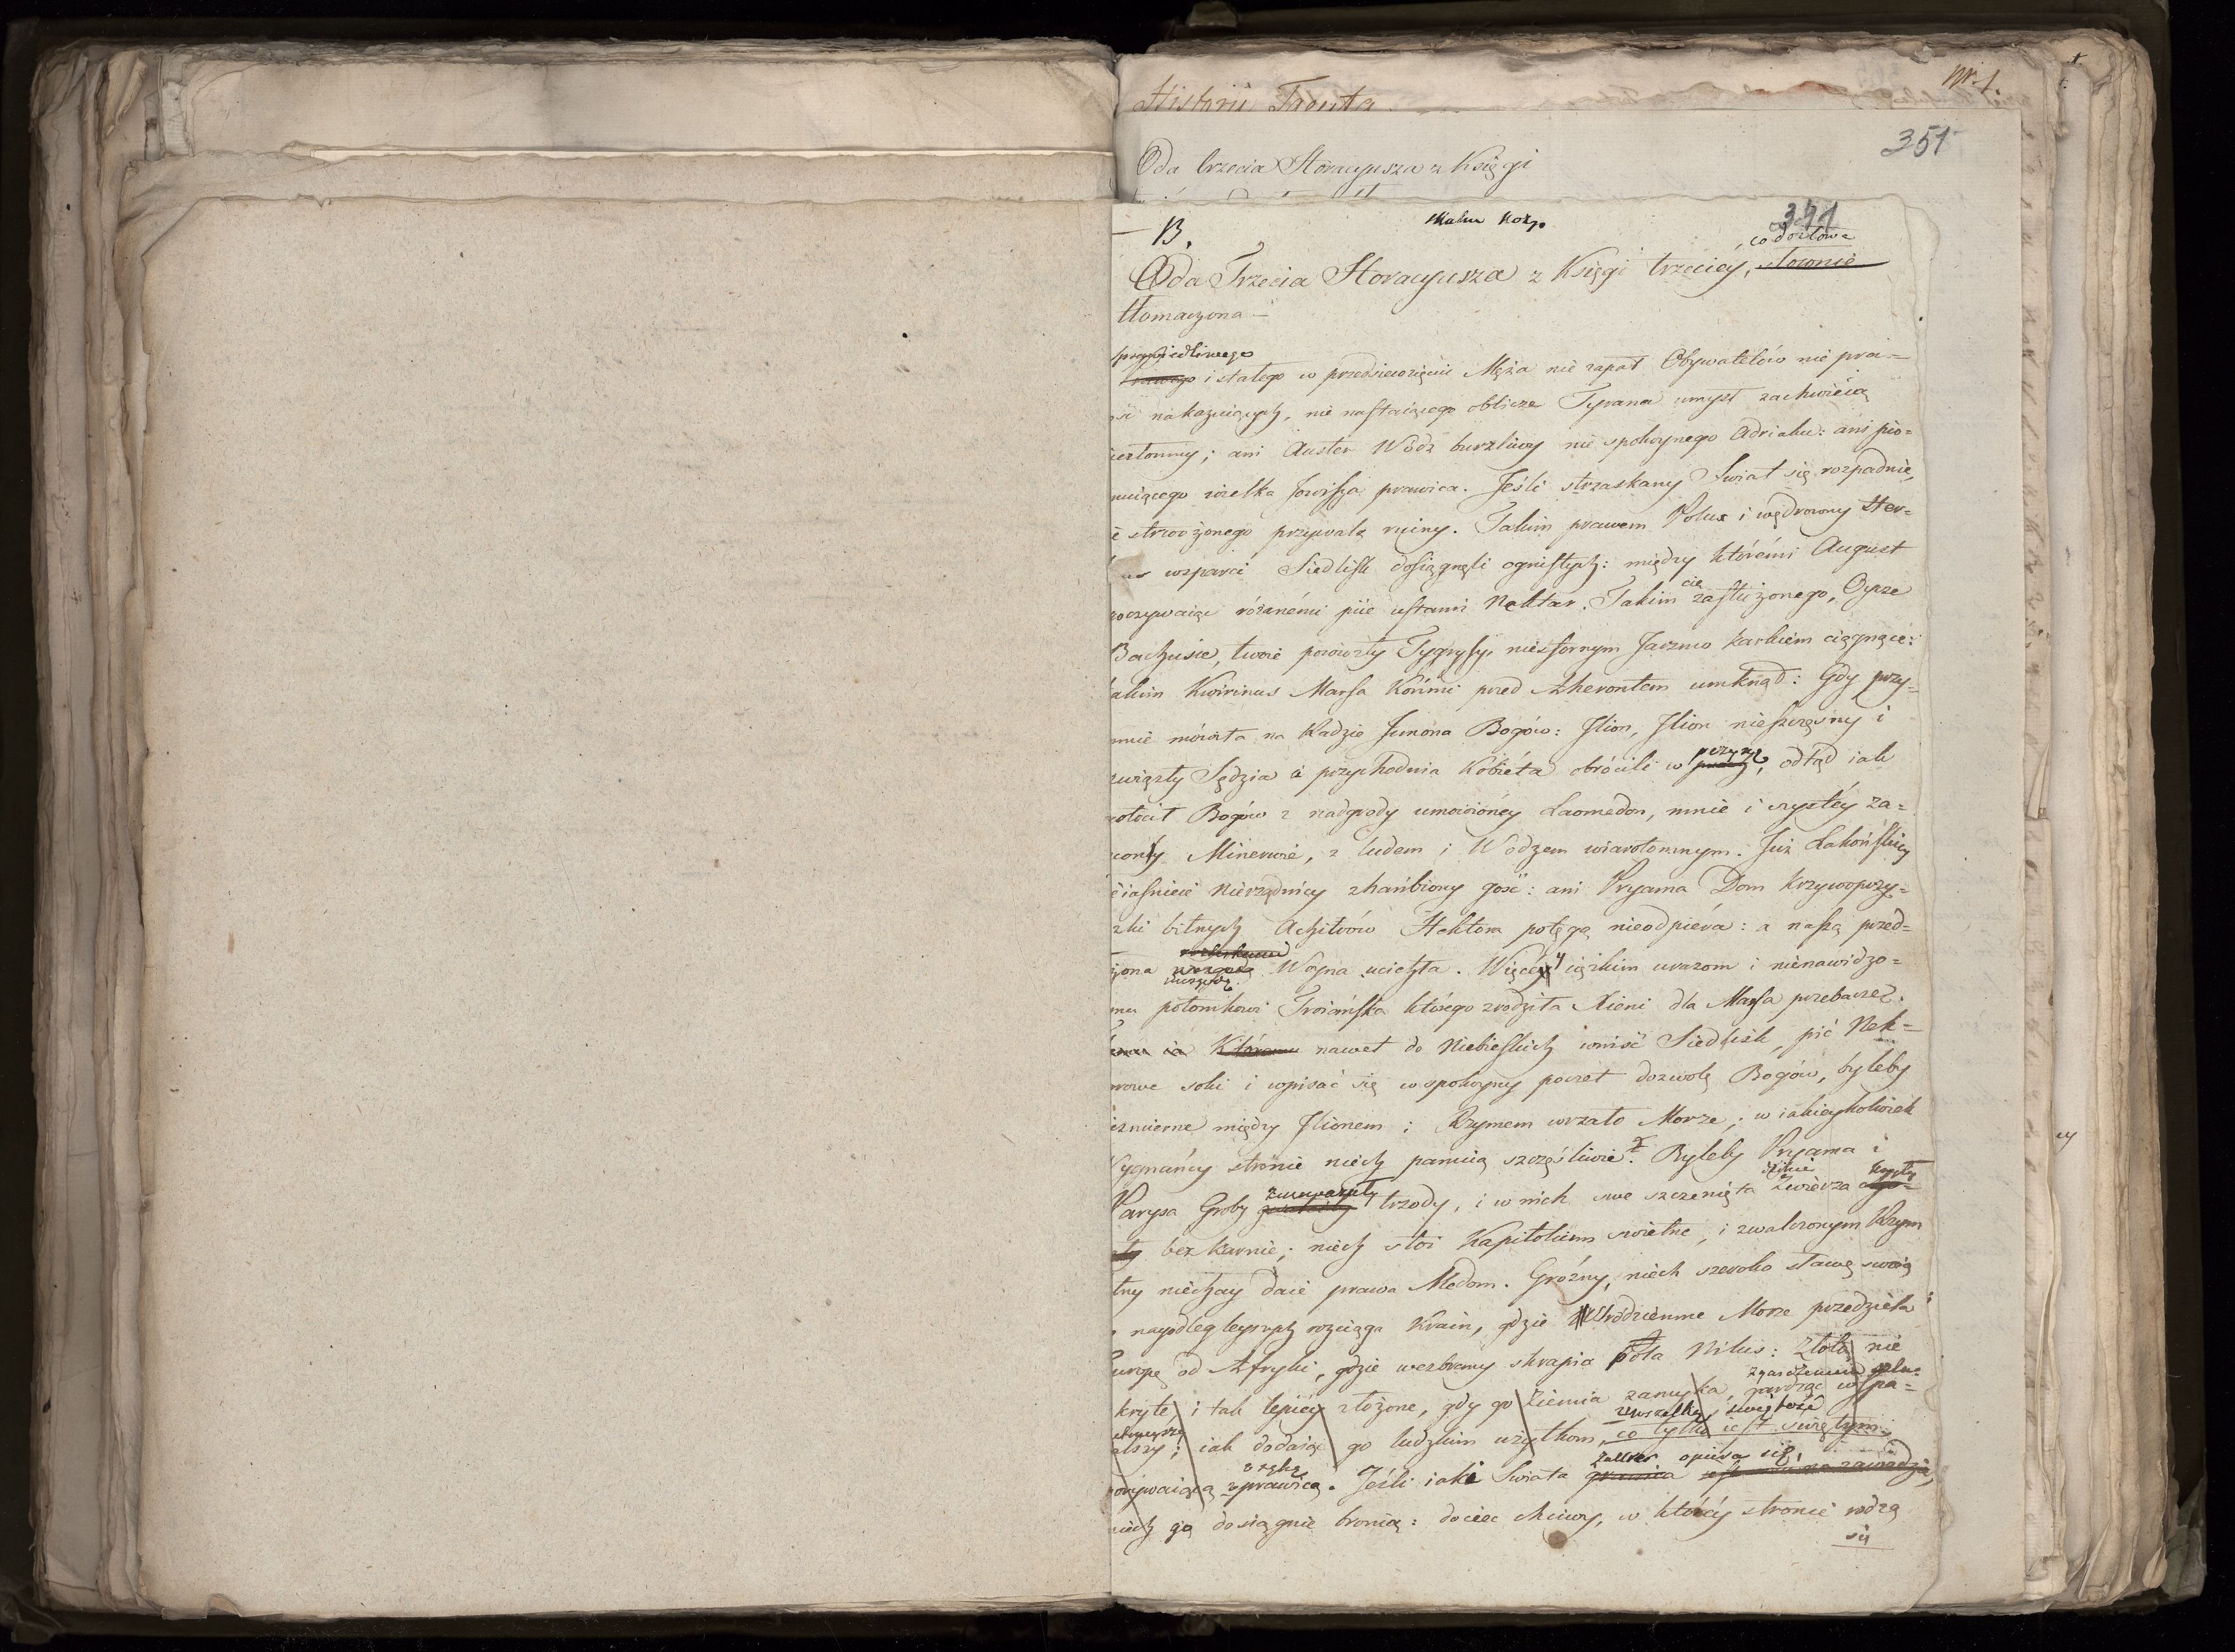 Nr. 1.
Historii Trenta
351
Oda trzecia Horacyusza z Księgi
B.
351
co do słowa
Oda Trzecia Horacyusza z Księgi trzeciéy, słownie
tłomaczona —
sprawiedliwego
i stałego w przedsięwzięciu Męża nie zapał Obywatelów nie pra=
nakazuiących, nie nastaiącego oblicze Tyrana umysł zachwieią
; ani Auster Wódz burzliwy nie spokoynego Adriaku: ani pio=
nuiącego wielka Jowisza prawica. Jeśli strzaskany Swiat się rozpadnie,
strwożonego przywalą ruiny. Takim prawem Polux i wędrowny Her=
wsparci Siedlisk dosięgnęli ognistych: między któremi August
różanémi piie ustami Nektar. Takim cię zasłużonego, Oycze
Bachusie, twoie powiozły Tygrysy, niesfornym Jarzmo karkiem ciągnące:
akim Kwirinus Marsa Końmi przed Akherontem umknął: Gdy przy=
mnie mówiła na Radzie Junona Bogów: Ilion, Ilion nieszczęsny i
Sędzia i przychodnia Kobiéta obrócili w perzynę, odtąd iak
Bogów z nadgrody umówionéy Laomedon, mnie i czystéy za=
Minerwie, z ludem i Wodzem wiarołomnym. Już Lakońskiéy
iaśnieie Nierządnicy zhańbiony gość: ani Pryama Dom krzywoprzy=
bitnych Achiwów Hektora potęgą nieodpiéra: a naszą przed=
żona Woyna ucichła. Więcéy ciężkim urazom i nienawidzo=
mu potomkowi Troiańska którego zrodziła Xieni dla Marsa przebaczę.
Któremu nawet do Niebieskich wniść Siedlisk, pić Nek=
rowe soki i wpisać się w spokoyny poczet dozwolę Bogów, byleby
iezmierne między Ilionem i Rzymem wrzało Morze; w iakieykolwiek
Wygnańcy stronie niech panuią szczęśliwie. Byleby Pryama i
dzikie kryły
Parysa Groby trzody, i w nich swe szczenięta Zwierza
bezkarnie; niech stoi Kapitolium swietne, i zwalczonym Rzym
tny niechay daie prawa Medom. Groźny, niech szeroko sławę swoią
nayodlegleyszych rozciąga Krain, gdzie śródziemne Morze przedziela
Europę od Afryki, gdzie wezbrany skrapia pola Nilus: Złoto, nie
kryte, i tak lepiéy złożone, gdy go Ziemia zamyka, gardząc wspa=
; iak dodaiąc go ludzkim użytkom, co tylko iest świętym
z ręką
prawicą. Jeśli iaki Swiata opiera się,
niech go dosięgnie bronią: dociec chciwy, w któréy stronie rodzą
się